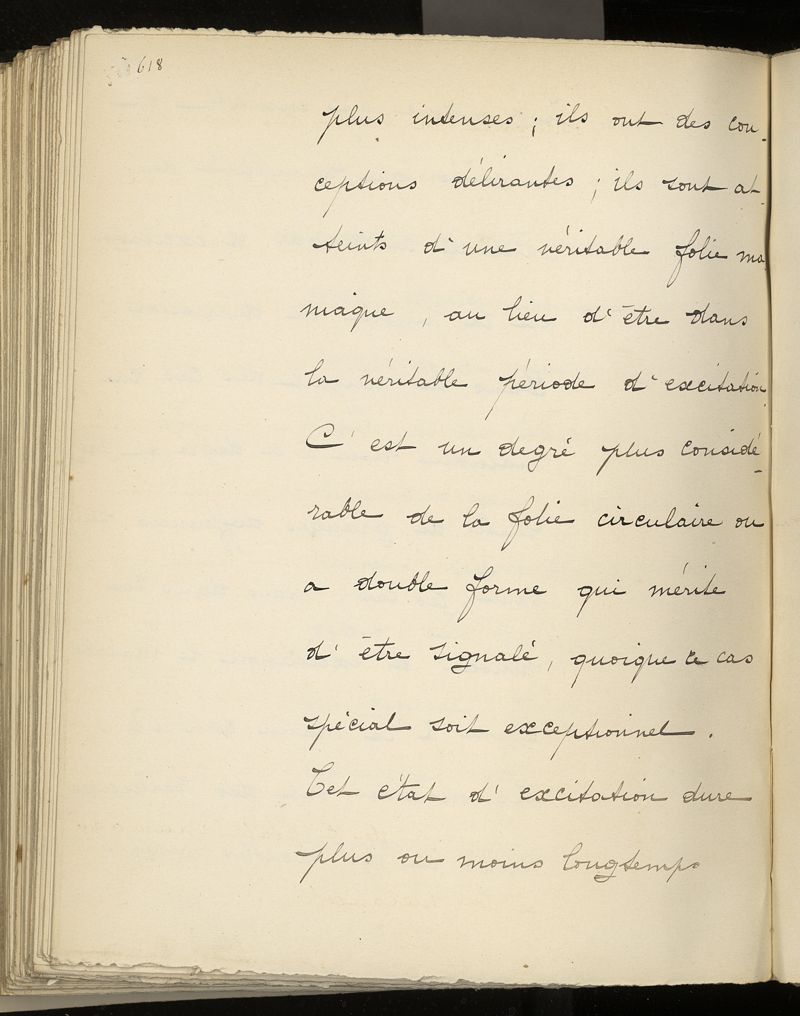 618
plus intenses ; ils ont des con-
ceptions délirantes ; ils sont at-
teints d'une véritable folie ma
niaque, au lieu d'être dans
la véritable période d'excitation.
C'est un degré plus considé-
rable de la folie circulaire ou
a double forme qui mérite
d'être signalé, quoique ce cas
spécial soit exceptionnel.
Cet état d'excitation dure
plus ou moins longtemps